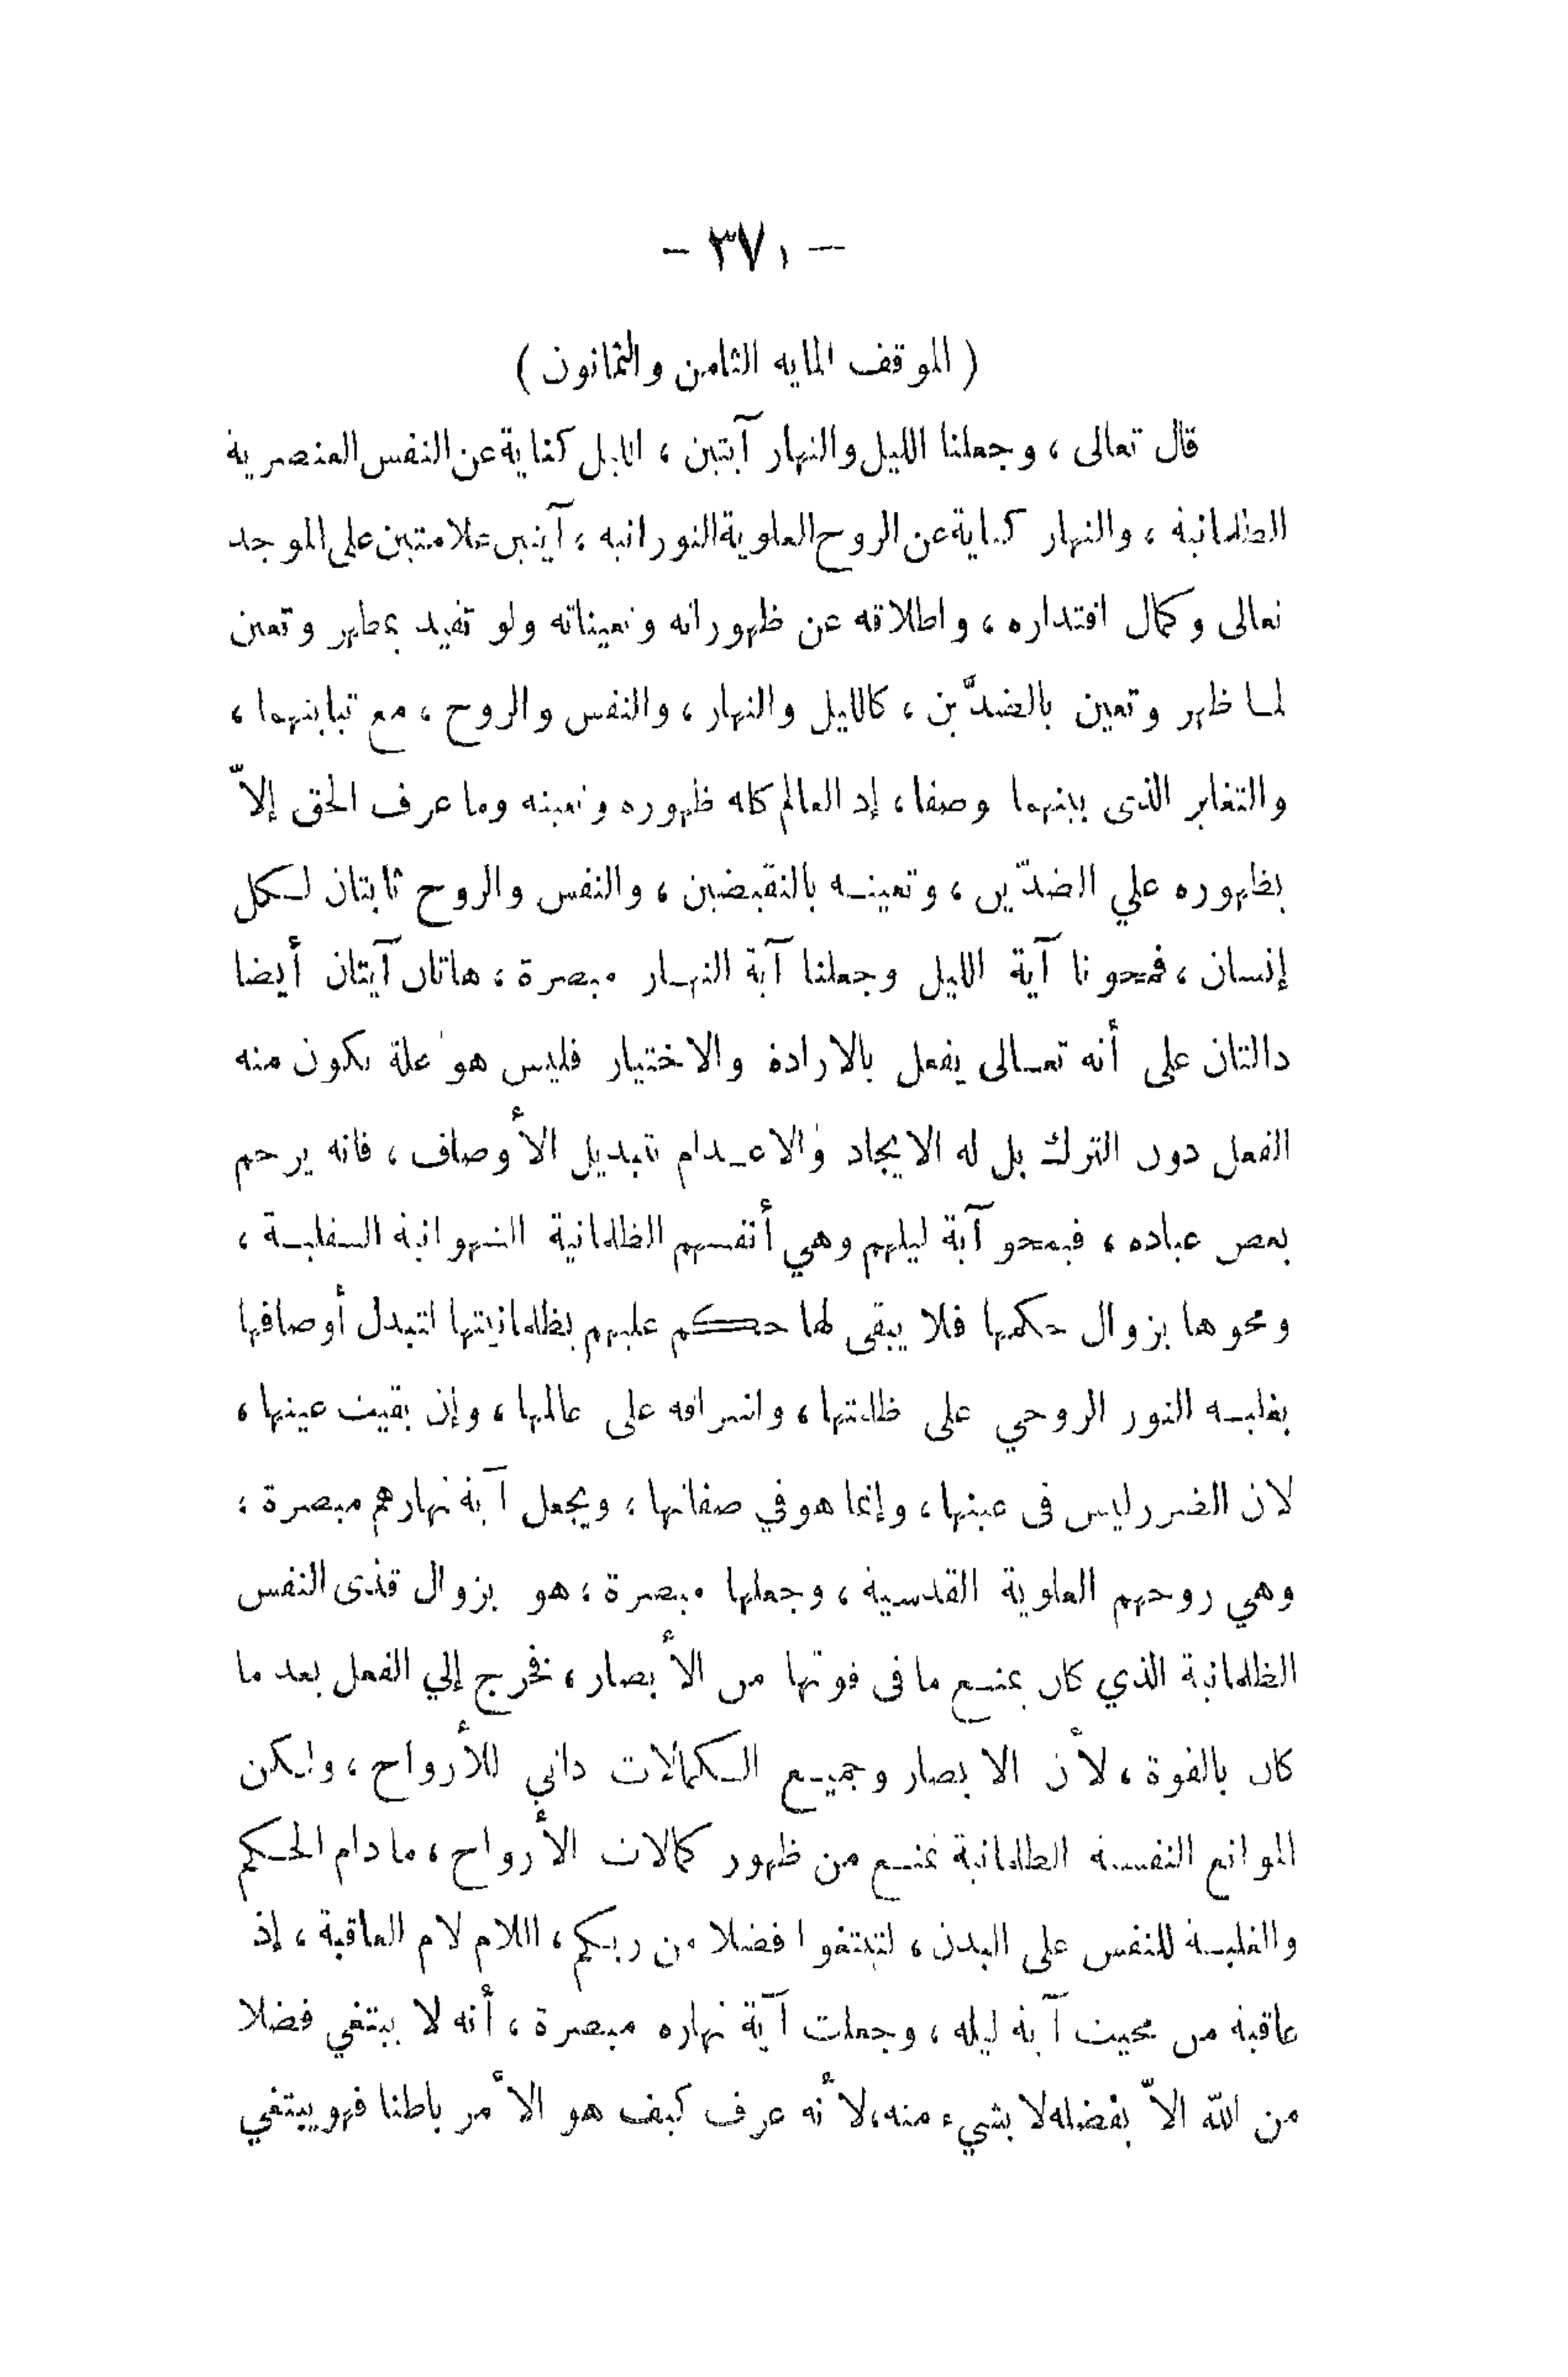 — ٣٧١ —
( الموقف المايه الثامن والثمانون )
قال تعالى ، وجعلنا الليل والنهار آيتين ، الليل كناية عن النفس العنصرية
الظلمانية ، والنهار كناية عن الروح العلوية النورانيه ، آيتين علامتين على الموجد
تعالى وكمال اقتداره ، واطلاقه عن ظهوراته وتعيناته ولو تقيد بمظهر وتعين
لما ظهر وتعين بالضدَّين ، كالليل والنهار ، والنفس والروح ، مع تباينهما ،
والتغاير الذى بينهما وصفا ، إذ العالم كله ظهوره وتعينه وما عرف الحق إلاّ
بظهوره علي الضدّين ، وتعينه بالنقيضين ، والنفس والروح ثابتان لكل
إنسان ، فمحونا آية الليل وجعلنا آية النهار مبصرة ، هاتان آيتان أيضا
دالتان على أنه تعالى يفعل بالارادة والاختيار فليس هو علة يكون منه
الفعل دون الترك بل له الايجاد والاعدام تبديل الأوصاف ، فانه يرحم
بعض عباده ، فيمحو آية ليلهم وهي أنفسهم الظلمانية الشهوانية السفلية ،
ومحوها بزوال حكمها فلا يبقى لها حكم عليهم بظلمانيتها لتبدل أوصافها
بغلبه النور الروحي على ظلمتها ، واشراقه على عالمها ، وإن بقيت عينها ،
لان الضرر ليس فى عينها ، وإنما هو في صفاتها ، ويجعل آية نهارهم مبصرة ،
وهي روحهم العلوية القدسية ، وجعلها مبصرة ، هو بزوال قذى النفس
الظلمانية الذي كان يمنع ما فى قوتها من الأبصار ، فخرج إلي الفعل بعد ما
كان بالقوة ، لأن الابصار وجميع الكمالات داتي للأرواح ، ولكن
الموانع النفسه الظلمانية تمنع من ظهور كمالات الأرواح ، ما دام الحكم
والغلبه للنفس على البدن ، لتبتغوا فضلا من ربكم ، اللام لام العاقبة ، إذ
عاقبة من محيت آية ليله ، وجعلت آية نهاره مبصرة ، أنه لا يبتغي فضلا
من الله الاّ بفضله لا بشيء منه ، لأنه عرف كيف هو الأمر باطنا فهو يبتغي